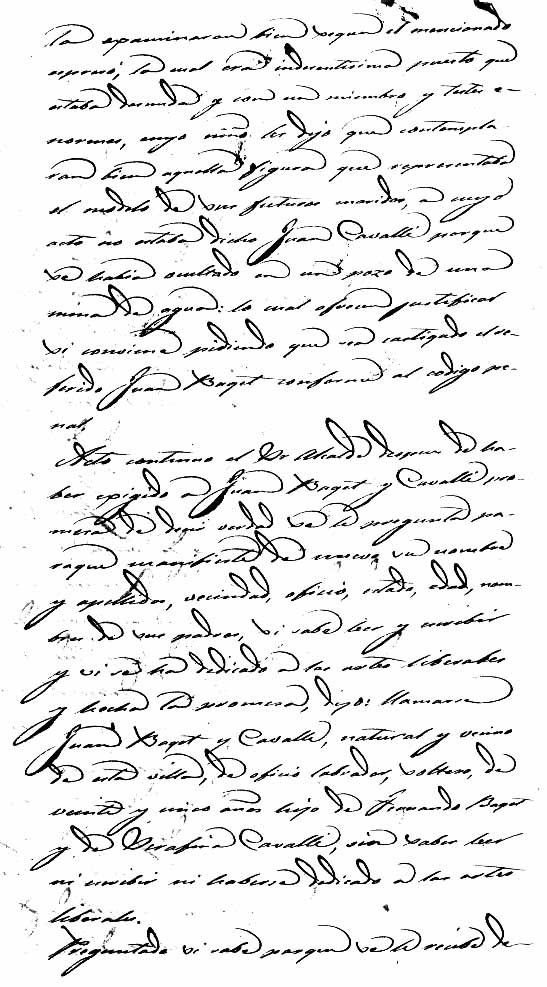 la examinaran bien segun el mencionado
espresó, la cual era indecentisima puesto que
estaba desnuda y con un miembro y testes e-
normes, cuyo niño les dijo que contempla
ran bien aquella figura que representaba
el modelo de sus futuros maridos, a cuyo
acto no estaba dicho Juan Cavallé porque
se habia ocultado en un pozo de una
mina de agua: lo cual ofrecen justificar
si conviene pidiendo que sea castigado el re-
ferido Juan Baget conforme al codigo pe-
nal.
Acto continuo el Sr Alcalde despues de ha-
ber exigido a Juan Baget y Cavallé pro-
mesa de decir verdad se le pregunta pa-
raque manifieste de nuevo su nombre
y apellidos, vecindad, oficio, estado, edad, nom-
bres de sus padres, si sabe leer y escribir
y si se ha dedicado a las artes liberales
y hecha la promesa, dijo: llamarse
Juan Baget y Cavallé, natural y vecino
de esta villa, de oficio labrador, soltero, de
veinte y cinco años hijo de Fernando Baget
y de Serafina Cavallé, sin saber leer
ni escribir ni haberse dedicado a las artes
liberales.
Preguntado si sabe porque se le recibe de-